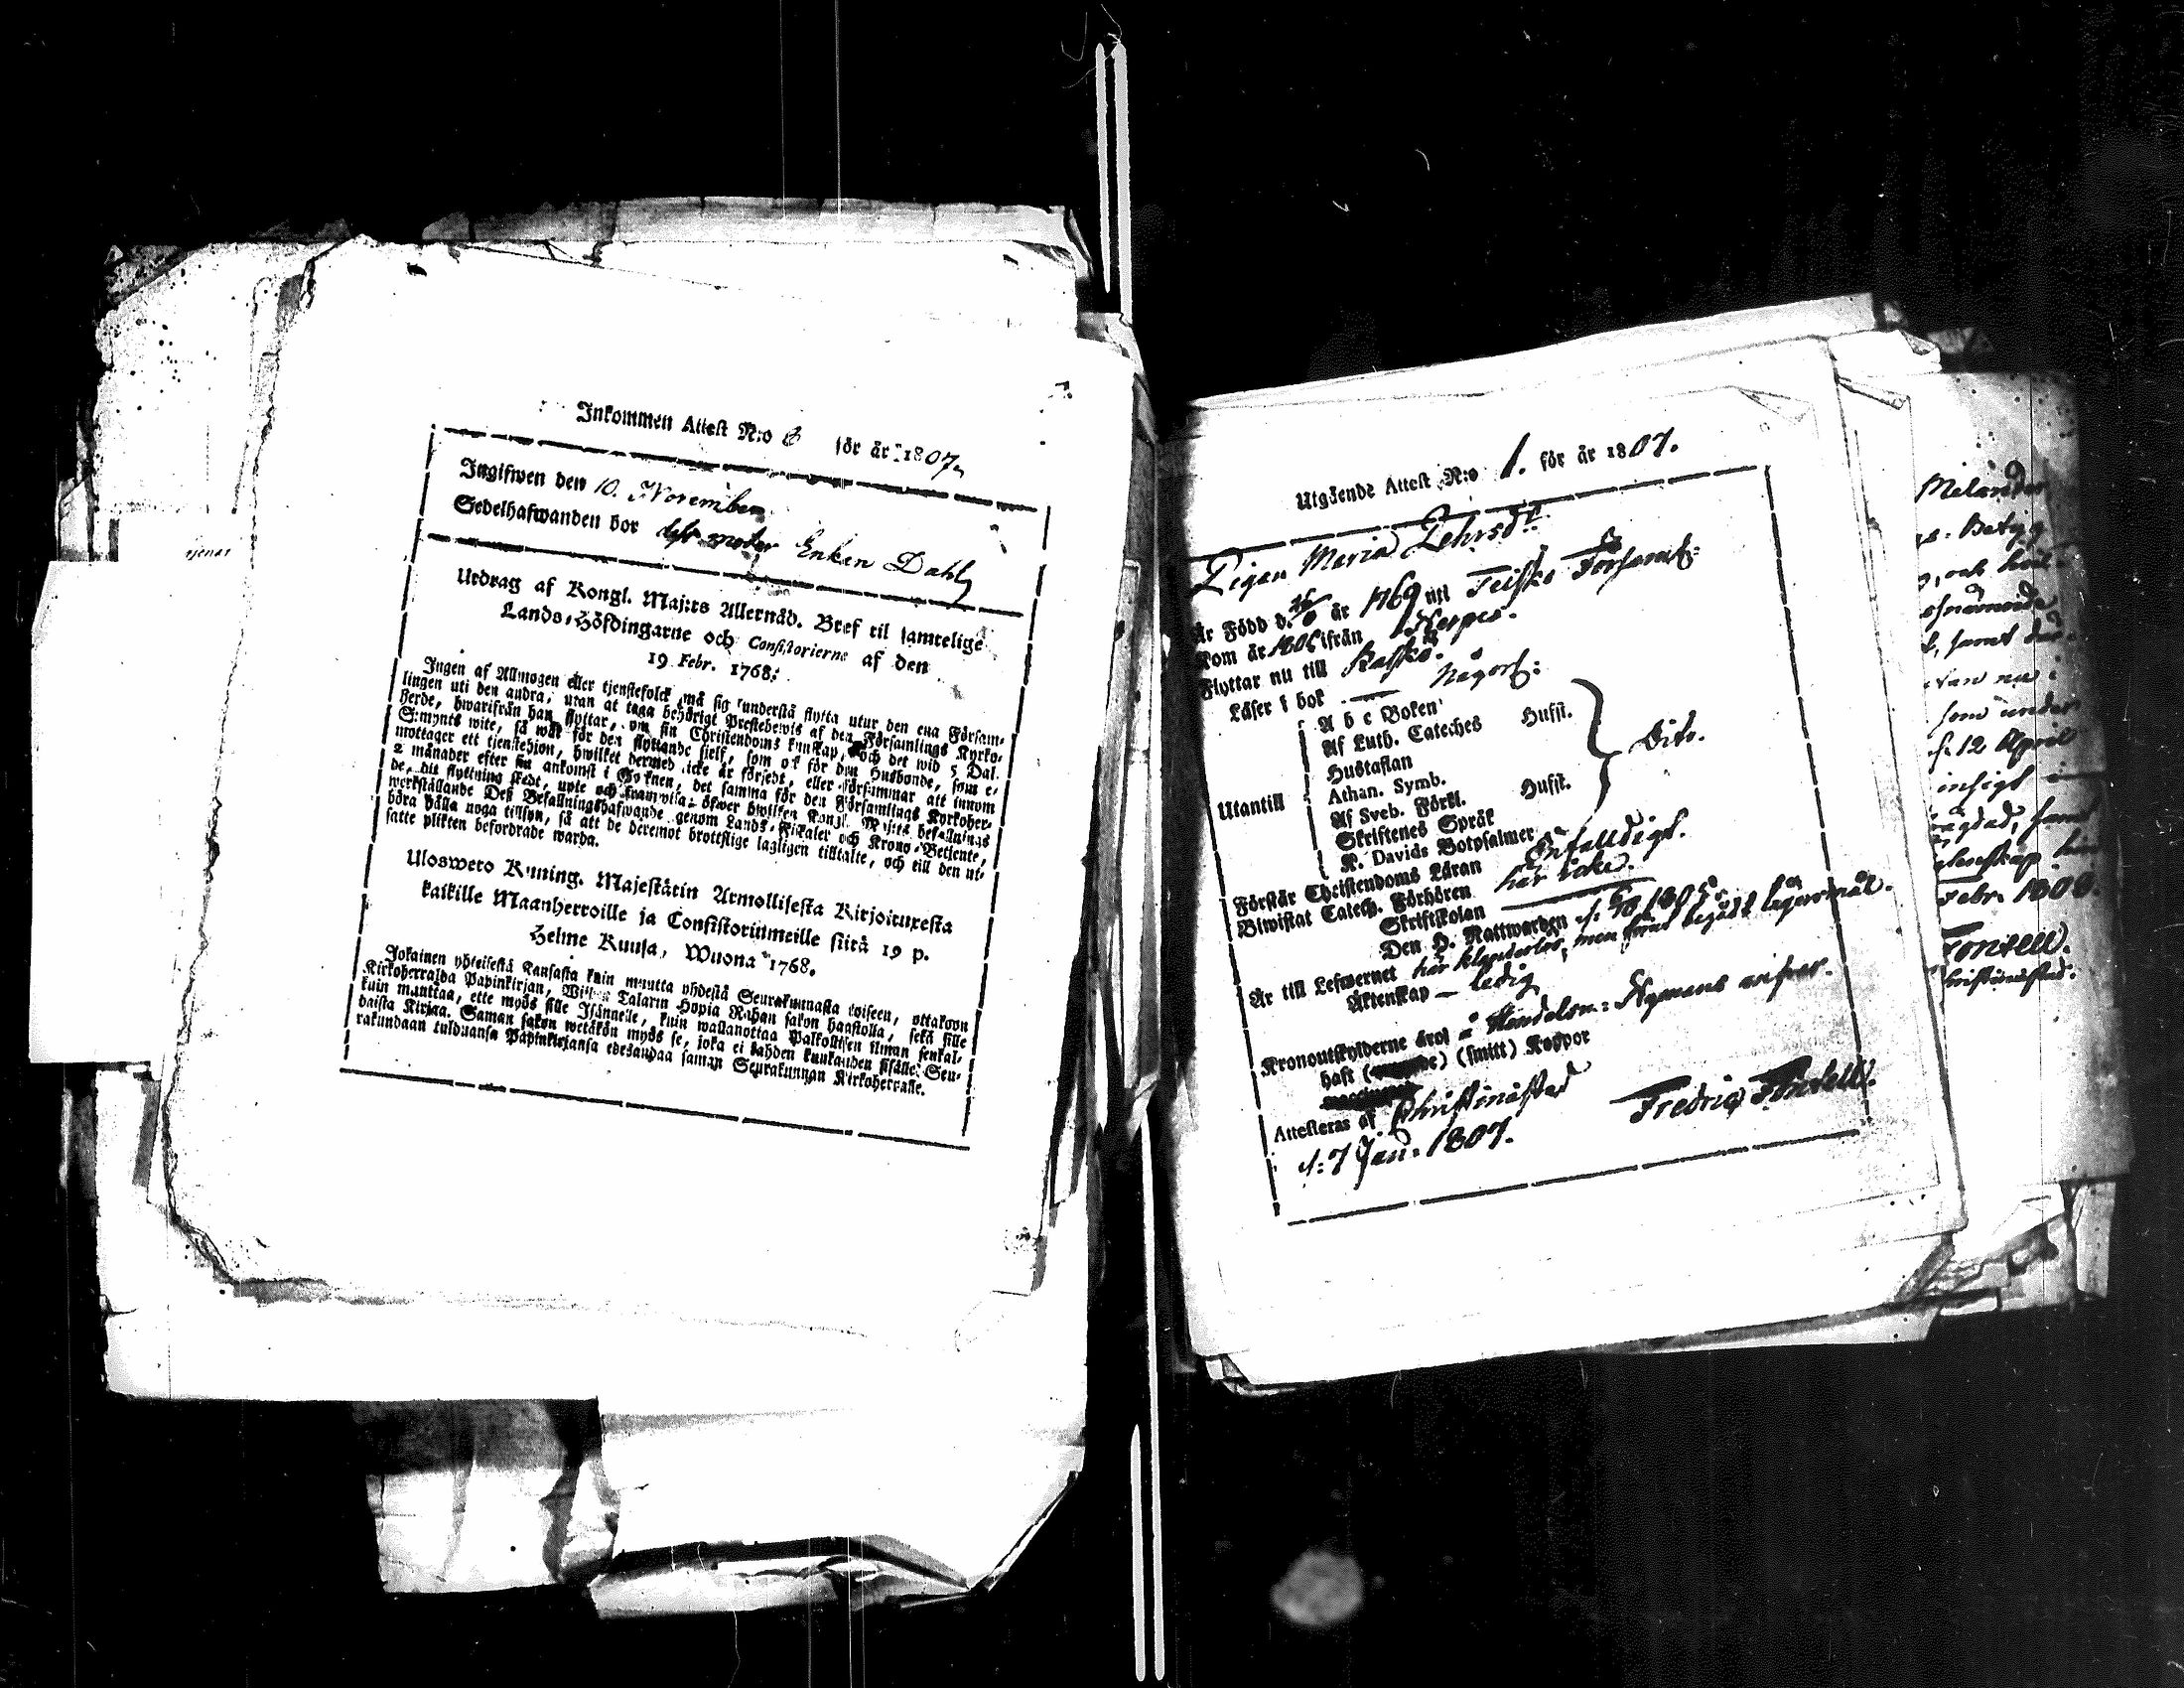 Inkommen Attest N:o 6 för år 1807.
Ingifwen den 10. November
Sedelhafwanden bor dess moder Enkan Dahl
Utdrag af Kongl. Maj:ts Allernåd. Bref til samtelige
Lands-Höfdingarne och Consistorierne af den
19 Febr. 1768:
Ingen af Allmogen eller tjenstefolck må sig understå flytta utur den ena Försam-
lingen uti den andra, utan at taga behörigt Prestebewis af den Församlings Kyrko-
herde, hwarifrån han flyttar, om sin Christendoms kunskap, och det wid 5 Dal.
S:mynts wite, så wäl för den flyttande sjelf, som ock för den Husbonde, som e-
mottager ett tjenstehjon, hwilket dermed icke är försedt, eller försummar att innom
2 månader efter sin ankomst i Soknen, det samma för den Församlings Kyrkoher-
de, dit flyttning skedt, upte och framwisa: öfwer hwilken Kongl. Maj:ts befallnings
werkställande Deß Befallningshafwande genom Lands-Fiskaler och Krono-Betjente,
böra hålla noga tillsyn, så att de deremot brottslige lagligen tilltalte, och till den ut-
satte plikten befordrade warda.
Uloswero Kuning. Majestätin Armollisesta Kirjoituxesta
kaikille Maanherroille ja Consistoriumeille siitä 19 p.
Helme Kuusa, Wuona 1768.
Jokainen yhteisestä Kansasta kuin muutta yhdestä Seurakunnasta toiseen, ottakoon
Kirkoherralda Papinkirjan, Wiiden Talarin Hopia Rahan sakon haastolla, sekä sille
kuin muuttaa, ette myös sille Isännelle, kuin wastanottaa Palkollisen ilman senkal-
daista Kirjaa. Saman sakon wetäkön myös se, joka ei kahden kuukauden sisälle Seu-
rakundaan tulduansa Papinkirjansa edesandaa saman Seurakunnan Kirkoherralle.
Utgående Attest N:o 1. för år 1807.
Pigan Maria Lehrsdr
Är Född d. år 1769 uti Teisko Församl:
Kom år 1805 ifrån
Flyttar nu till Kasko.
Läser i bok — Någorl:
Utantill
A b c Boken
Af Luth. Cateches Hufst.
Hustaflan
Athan. Symb.
Af Sveb. Förkl. Hufst.
Skriftenes Språk
K. Davids Botpsalmer
Dito.
Förstår Christendoms Läran Enfalldigt.
Biwistat Catech. Förhören här icke.
Skriftskolan —
Den H. Nattwarden d. 1805
Är till Lefwernet här klanderlös, men förut begått lägersmål.
Äktenskap — ledig
Kronoutskylderne äro å Handelsm: Nymans
haft (smitt) Koppor
Attesteras af Christinæstad
d: 7 Jan: 1807.
Fredric Fontell.
Melander
Betyg
och
12 April
insigt
Febr. 1800.
Fontell.
Christinæstad.